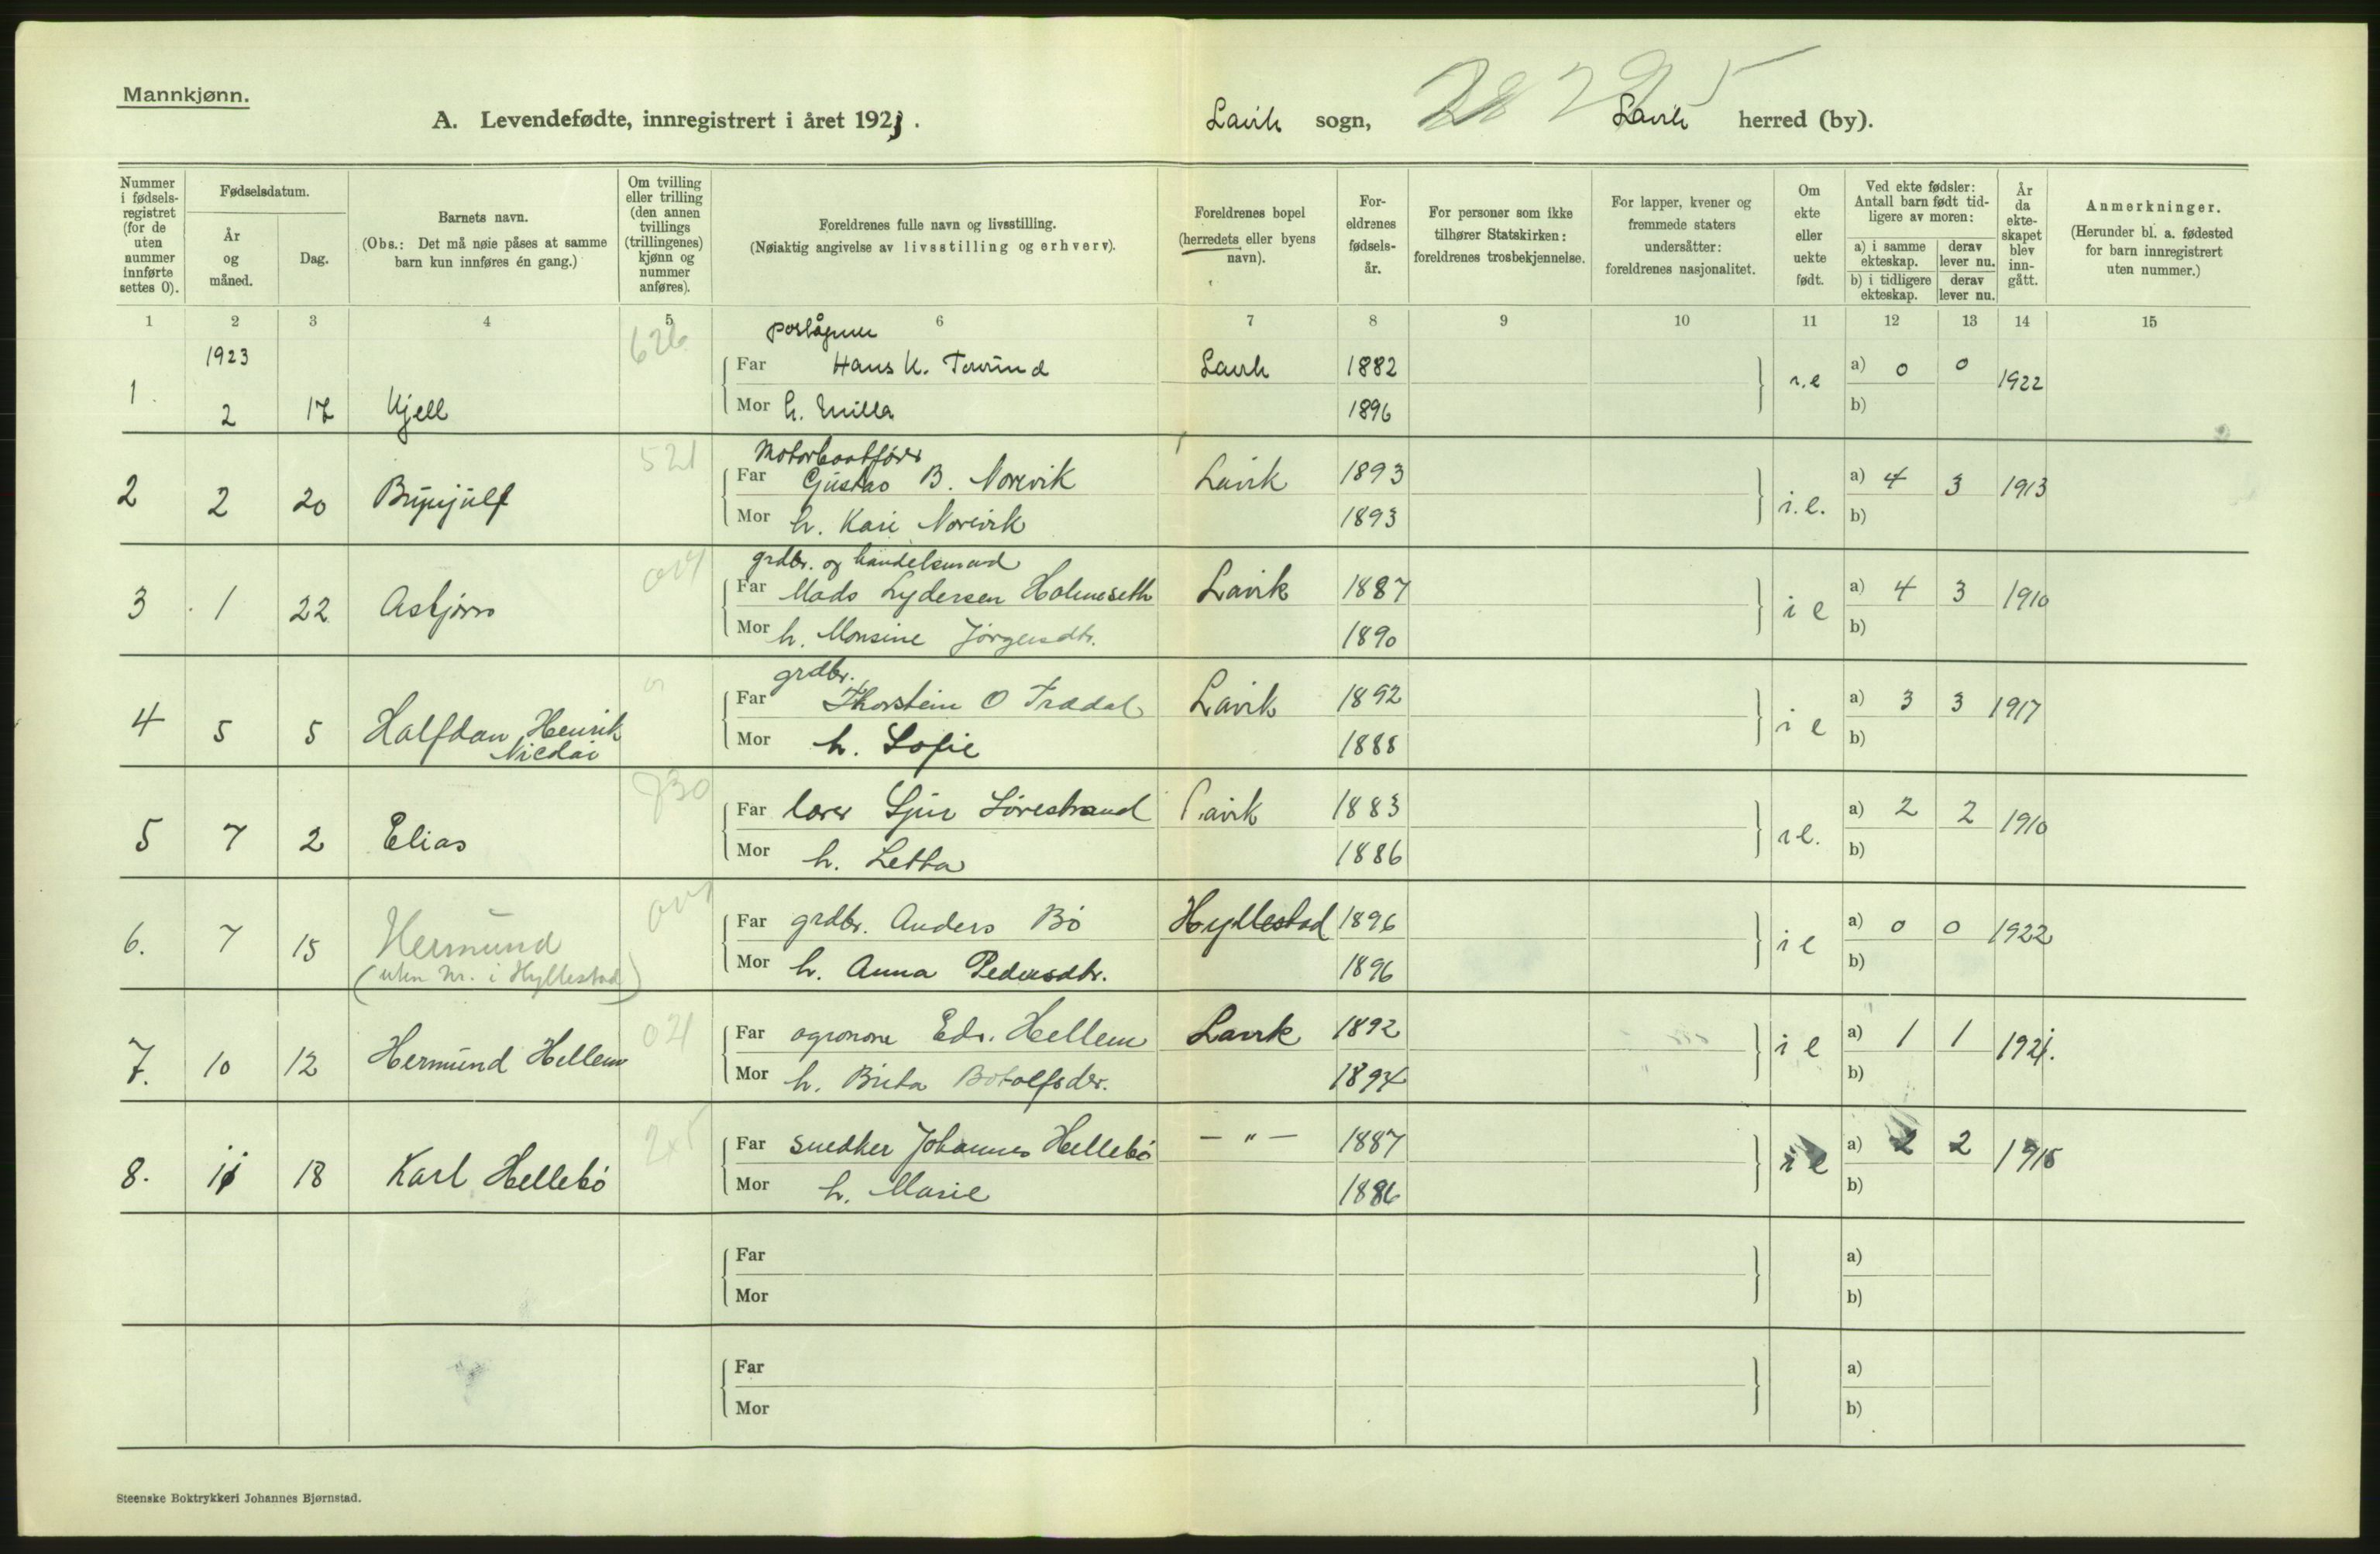 Mannkjønn.
A. Levendefødte, innregistrert i året 1923. Lavik sogn, Lavik herred (by).
Nummer i fødselsregistret (for de uten nummer innførte settes 0).
Fødselsdatum.
År og måned.
Dag.
Barnets navn.
(Obs.: Det må nøie påses at samme barn kun innføres én gang.)
Om tvilling eller trilling (den annen tvillings (trillingenes) kjønn og nummer anføres).
Foreldrenes fulle navn og livsstilling.
(Nøiaktig angivelse av livsstilling og erhverv).
Foreldrenes bopel (herredets eller byens navn).
Foreldrenes fødselsår.
For personer som ikke tilhører Statskirken: foreldrenes trosbekjennelse.
For lapper, kvener og fremmede staters undersåtter: foreldrenes nasjonalitet.
Om ekte eller uekte født.
Ved ekte fødsler: Antall barn født tidligere av moren:
a) i samme ekteskap. derav lever nu.
b) i tidligere ekteskap. derav lever nu.
År da ekteskapet blev inngått.
Anmerkninger.
(Herunder bl. a. fødested for barn innregistrert uten nummer.)
1 2 3 4 5 6 7 8 9 10 11 12 13 14 15
1923 626
Far Hans K. Lavik 1882 a) 0 0
1. 2 17 Kjell i.e 1922
Mor h. Milla 1896 b)
521 Motorbaatfører
Far Gustav B. Norevik Lavik 1893 a) 4 3 1913
2 2 20 Brynjulf i.e.
Mor h. Kari Norevik 1893 b)
grdbr. og handelsmand
Far Mads Lydersen Holmeseth Lavik 1887 a) 4 3 1910
3 1 22 Asbjørn i e
Mor h. Monsine Jørgensdtr. 1890 b)
grdbr.
Far Thorstein O Trædal Lavik 1892 a) 3 3 1917
4 5 5 Halfdan Henrik i e
Nicolai
Mor h. Sofie 1888 b)
830
Far lærer Sjur Sørestrand Lavik 1883 a) 2 2 1910
5 7 2 Elias i e.
Mor h. Letta 1886 b)
Far grdbr. Anders Bö Hyllestad 1896 a) 0 0 1922
6. 7 15 Hermund i e
(uten nr. i Hyllestad)
Mor h. Anna Pedersdtr. 1896 b)
021
Far agronom Edv. Hellem Lavik 1892 a) 1 1 1921.
7. 10 12 Hermund Hellem i e
Mor h. Brita Botolfsdtr. 1894 b)
Far snedker Johannes Hellebö — " — 1887 a) 2 2
8. 11 18 Karl Hellebö i e 1915
Mor h. Marie 1886 b)
Far a)
Mor b)
Far a)
Mor b)
Steenske Boktrykkeri Johannes Bjørnstad.